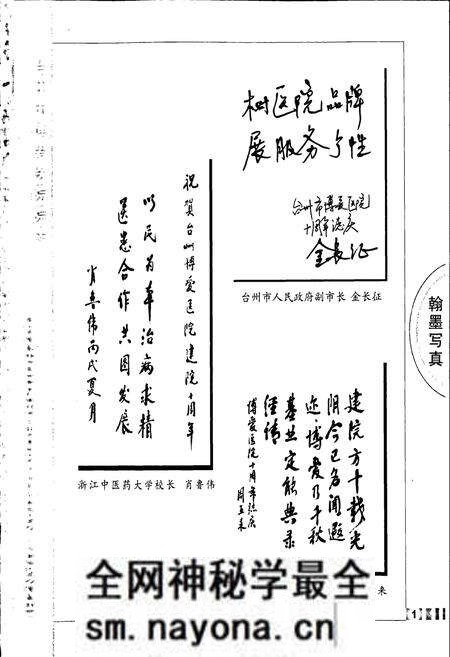 树医院品牌
展服务个性
台州市博爱医院
十周年志庆
金长征
台州市人民政府副市长 金长征
祝贺台州博爱医院建院十周年
以民为本治病求精
医患合作共图发展
肖鲁伟丙戌夏月
浙江中医药大学校长 肖鲁伟
建院方十载光
阴今已名闻遐
迩博爱乃千秋
基业定能典录
博爱医院十周年志庆
翰墨写真
全网神秘学最全
sm.nayona.cn
来
[1]